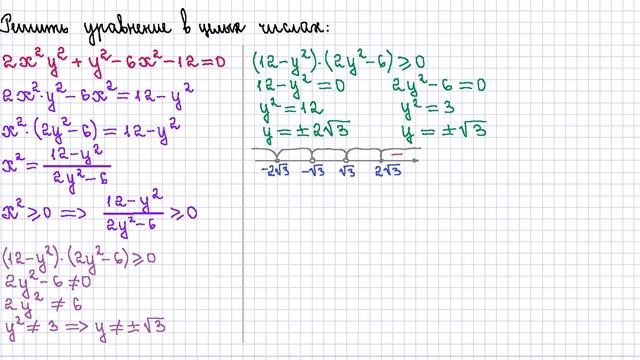 Решить уравнение в целых числах:
2x²y² + y² - 6x² - 12 = 0
2x²·y² - 6x² = 12 - y²
x²·(2y² - 6) = 12 - y²
x² = (12 - y²)/(2y² - 6)
x² ≥ 0 => (12 - y²)/(2y² - 6) ≥ 0
(12 - y²)·(2y² - 6) ≥ 0
2y² - 6 ≠ 0
2y² ≠ 6
y² ≠ 3 => y ≠ ±√3
(12 - y²)·(2y² - 6) ≥ 0
12 - y² = 0 2y² - 6 = 0
y² = 12 y² = 3
y = ±2√3 y = ±√3
−
-2√3 -√3 √3 2√3